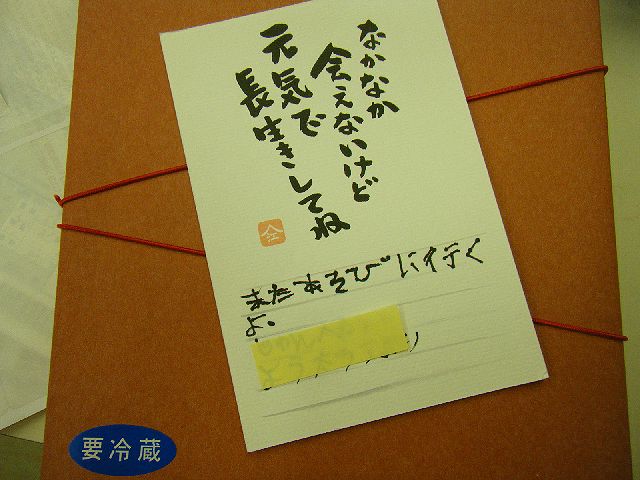 なかなか
会えないけど
元気で
長生きしてね
またあそびに行く
よ。
要冷蔵